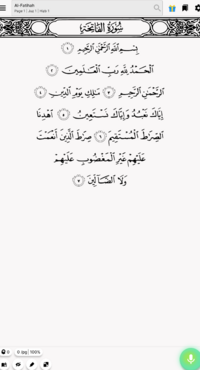 Al-Fatihah
Page 1 | Juz 1 | Hizb 1
سُورَةُ الفَاتِحَةِ
بِسْمِ اللَّهِ الرَّحْمَٰنِ الرَّحِيمِ ١
الْحَمْدُ لِلَّهِ رَبِّ الْعَالَمِينَ ٢
الرَّحْمَٰنِ الرَّحِيمِ ٣ مَالِكِ يَوْمِ الدِّينِ ٤
إِيَّاكَ نَعْبُدُ وَإِيَّاكَ نَسْتَعِينُ ٥ اهْدِنَا
الصِّرَاطَ الْمُسْتَقِيمَ ٦ صِرَاطَ الَّذِينَ أَنْعَمْتَ
عَلَيْهِمْ غَيْرِ الْمَغْضُوبِ عَلَيْهِمْ
وَلَا الضَّالِّينَ ٧
0 0 /pg | 100%